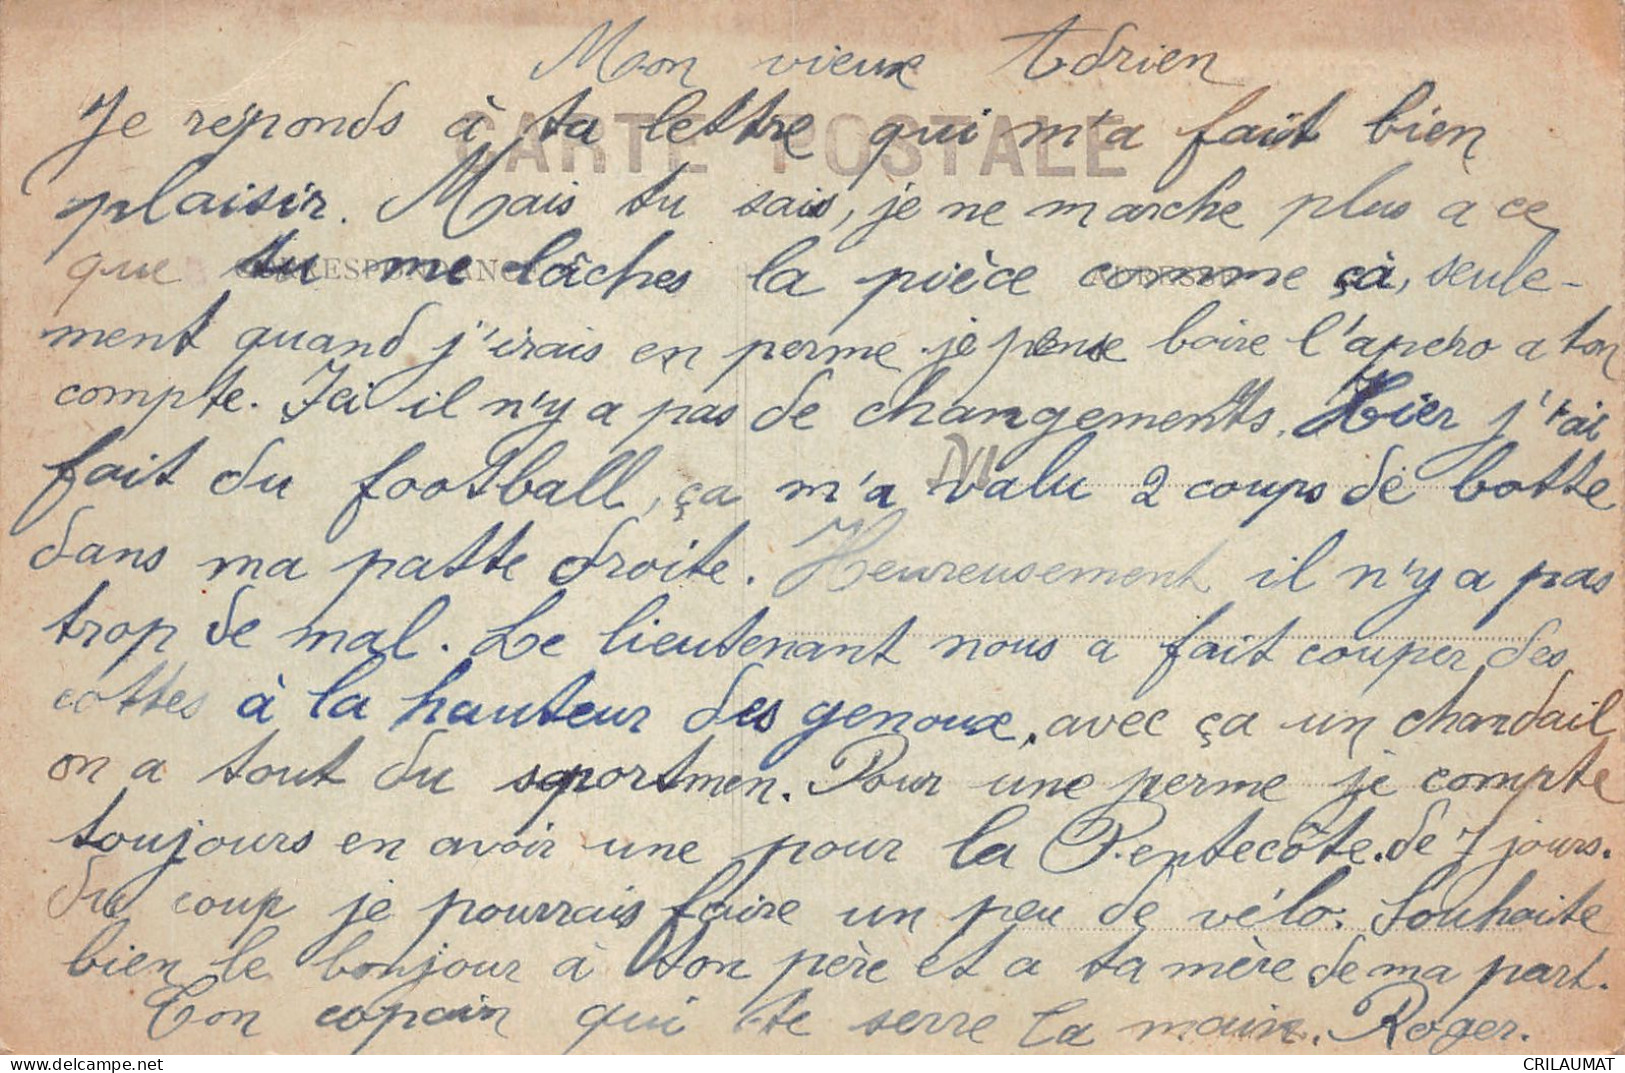 Mon vieux Adrien
CARTE POSTALE
Je réponds à ta lettre qui m'a fait bien
plaisir. Mais tu sais, je ne marche plus a ce
CORRESPONDANCE
ADRESSE
que tu me lâches la pièce comme çà, seule-
ment quand j'irais en perme je pense boire l'apéro a ton
compte. Ici il n'y a pas de changements. Hier j'ai
fait du football, ça m'a valu 2 coups de botte
dans ma patte droite. Heureusement il n'y a pas
trop de mal. Le lieutenant nous a fait couper des
cottes à la hauteur des genoux, avec ça un chandail
on a tout du sportmen. Pour une perme je compte
toujours en avoir une pour la Pentecôte. de 7 jours.
du coup je pourrais faire un peu de vélo. Souhaite
bien le bonjour à ton père et a ta mère de ma part.
Ton copain qui te serre la main. Roger.
delcampe.net
CRILAUMAT